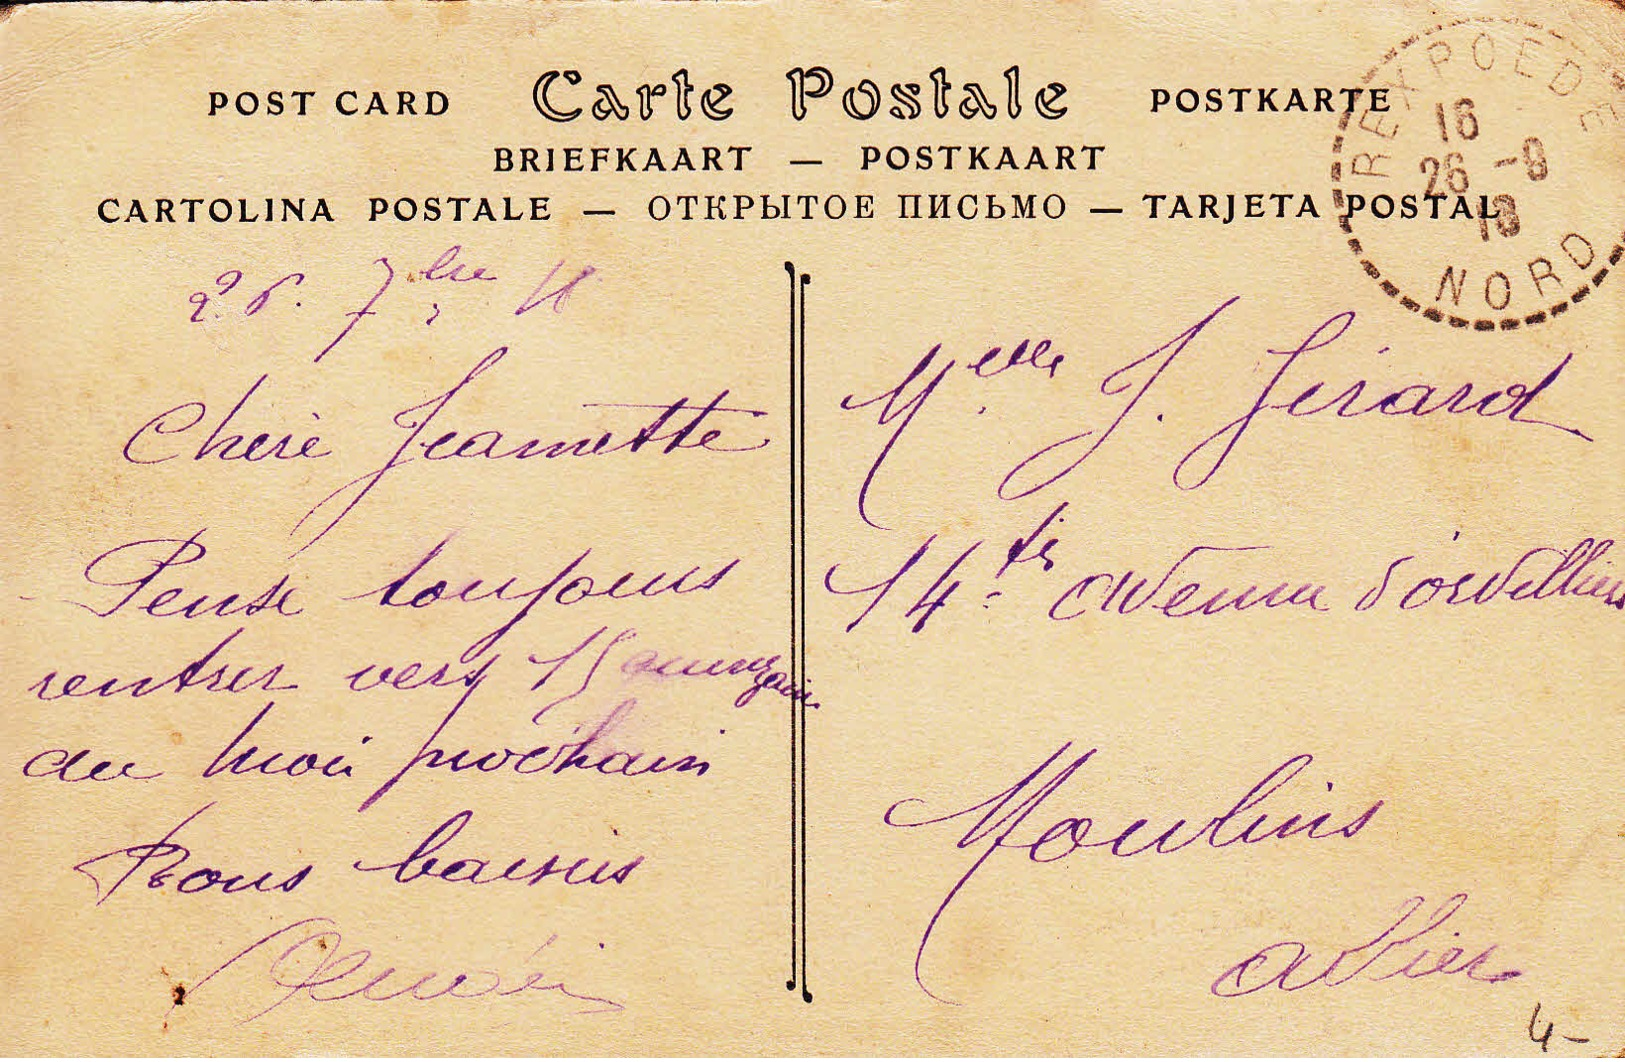 POST CARD Carte Postale POSTKARTE
BRIEFKAART — POSTKAART
CARTOLINA POSTALE — ОТКРЫТОЕ ПИСЬМО — TARJETA POSTAL
REXPOEDE
16
26 -9
18
NORD
26. 7bre 18
Chère Jeannette
Pense toujours
rentrer vers 15
du mois prochain
Bons baisers
Melle J. Girard
14 - ter avenue d'orvilliers
Moulins
Allier
4-